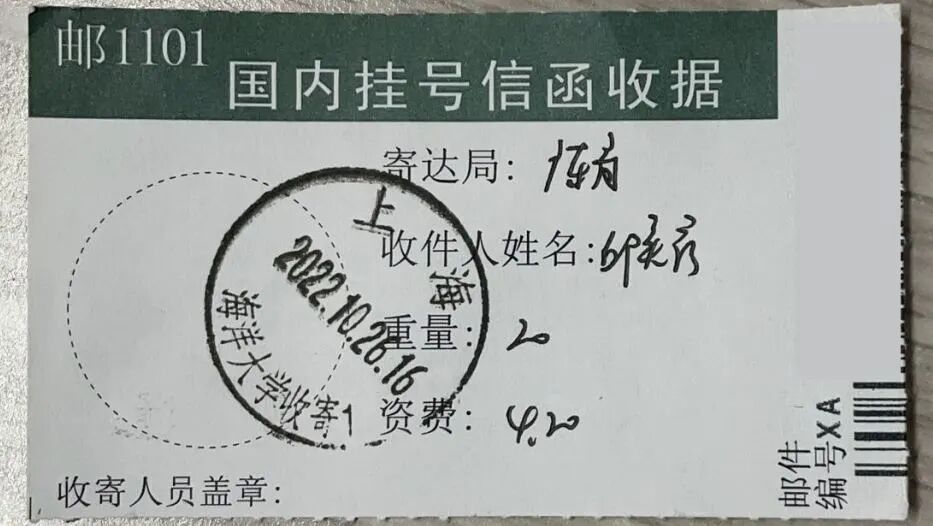 邮1101
国内挂号信函收据
寄达局:
收件人姓名:
重量: 20
资费: 4.20
上海
2022.10.26.16
海洋大学收寄1
收寄人员盖章:
邮件
编号XA